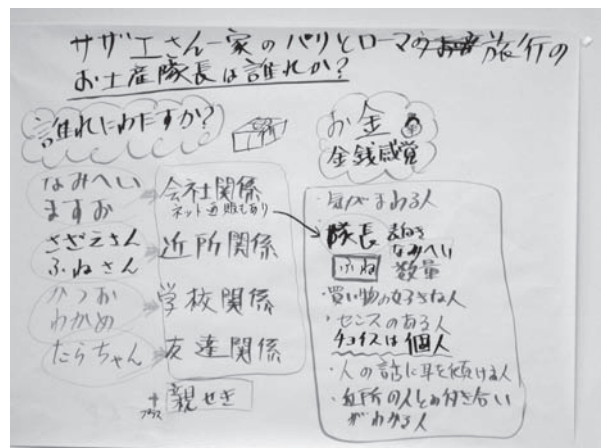 サザエさん一家のパリとローマの旅行の
お土産隊長は誰れか?
誰れにわたすか?
なみへい
ますお
さざえさん
ふねさん
かつお
わかめ
たらちゃん
会社関係
ネット通販もあり
近所関係
学校関係
友達関係
+
プラス
親せき
お金
金銭感覚
・気がまわる人
隊長 表向き
なみへい
ふね 数量
・買い物の好きな人
・センスのある人
チョイスは個人
・人の話に耳を傾ける人
・近所の人との付き合い
がわかる人